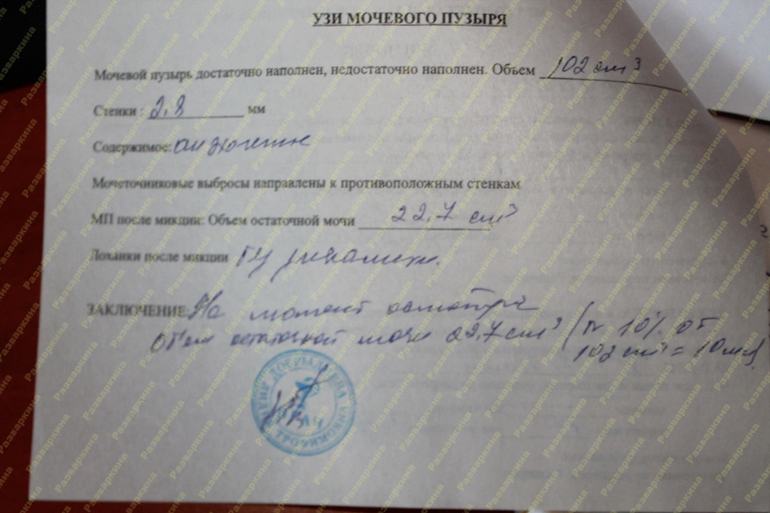 УЗИ МОЧЕВОГО ПУЗЫРЯ
Мочевой пузырь достаточно наполнен, недостаточно наполнен. Объем 102 см³
Стенки : 2,8 мм
Содержимое: анэхогенне
Мочеточниковые выбросы направлены к противоположным стенкам
МП после микции: Объем остаточной мочи 22,7 см³
Лоханки после микции
ЗАКЛЮЧЕНИЕ: На момент осмотра
Объем остаточной мочи 22,7 см³ (N 10% от
102 см³ = 10мл)
Разваркина